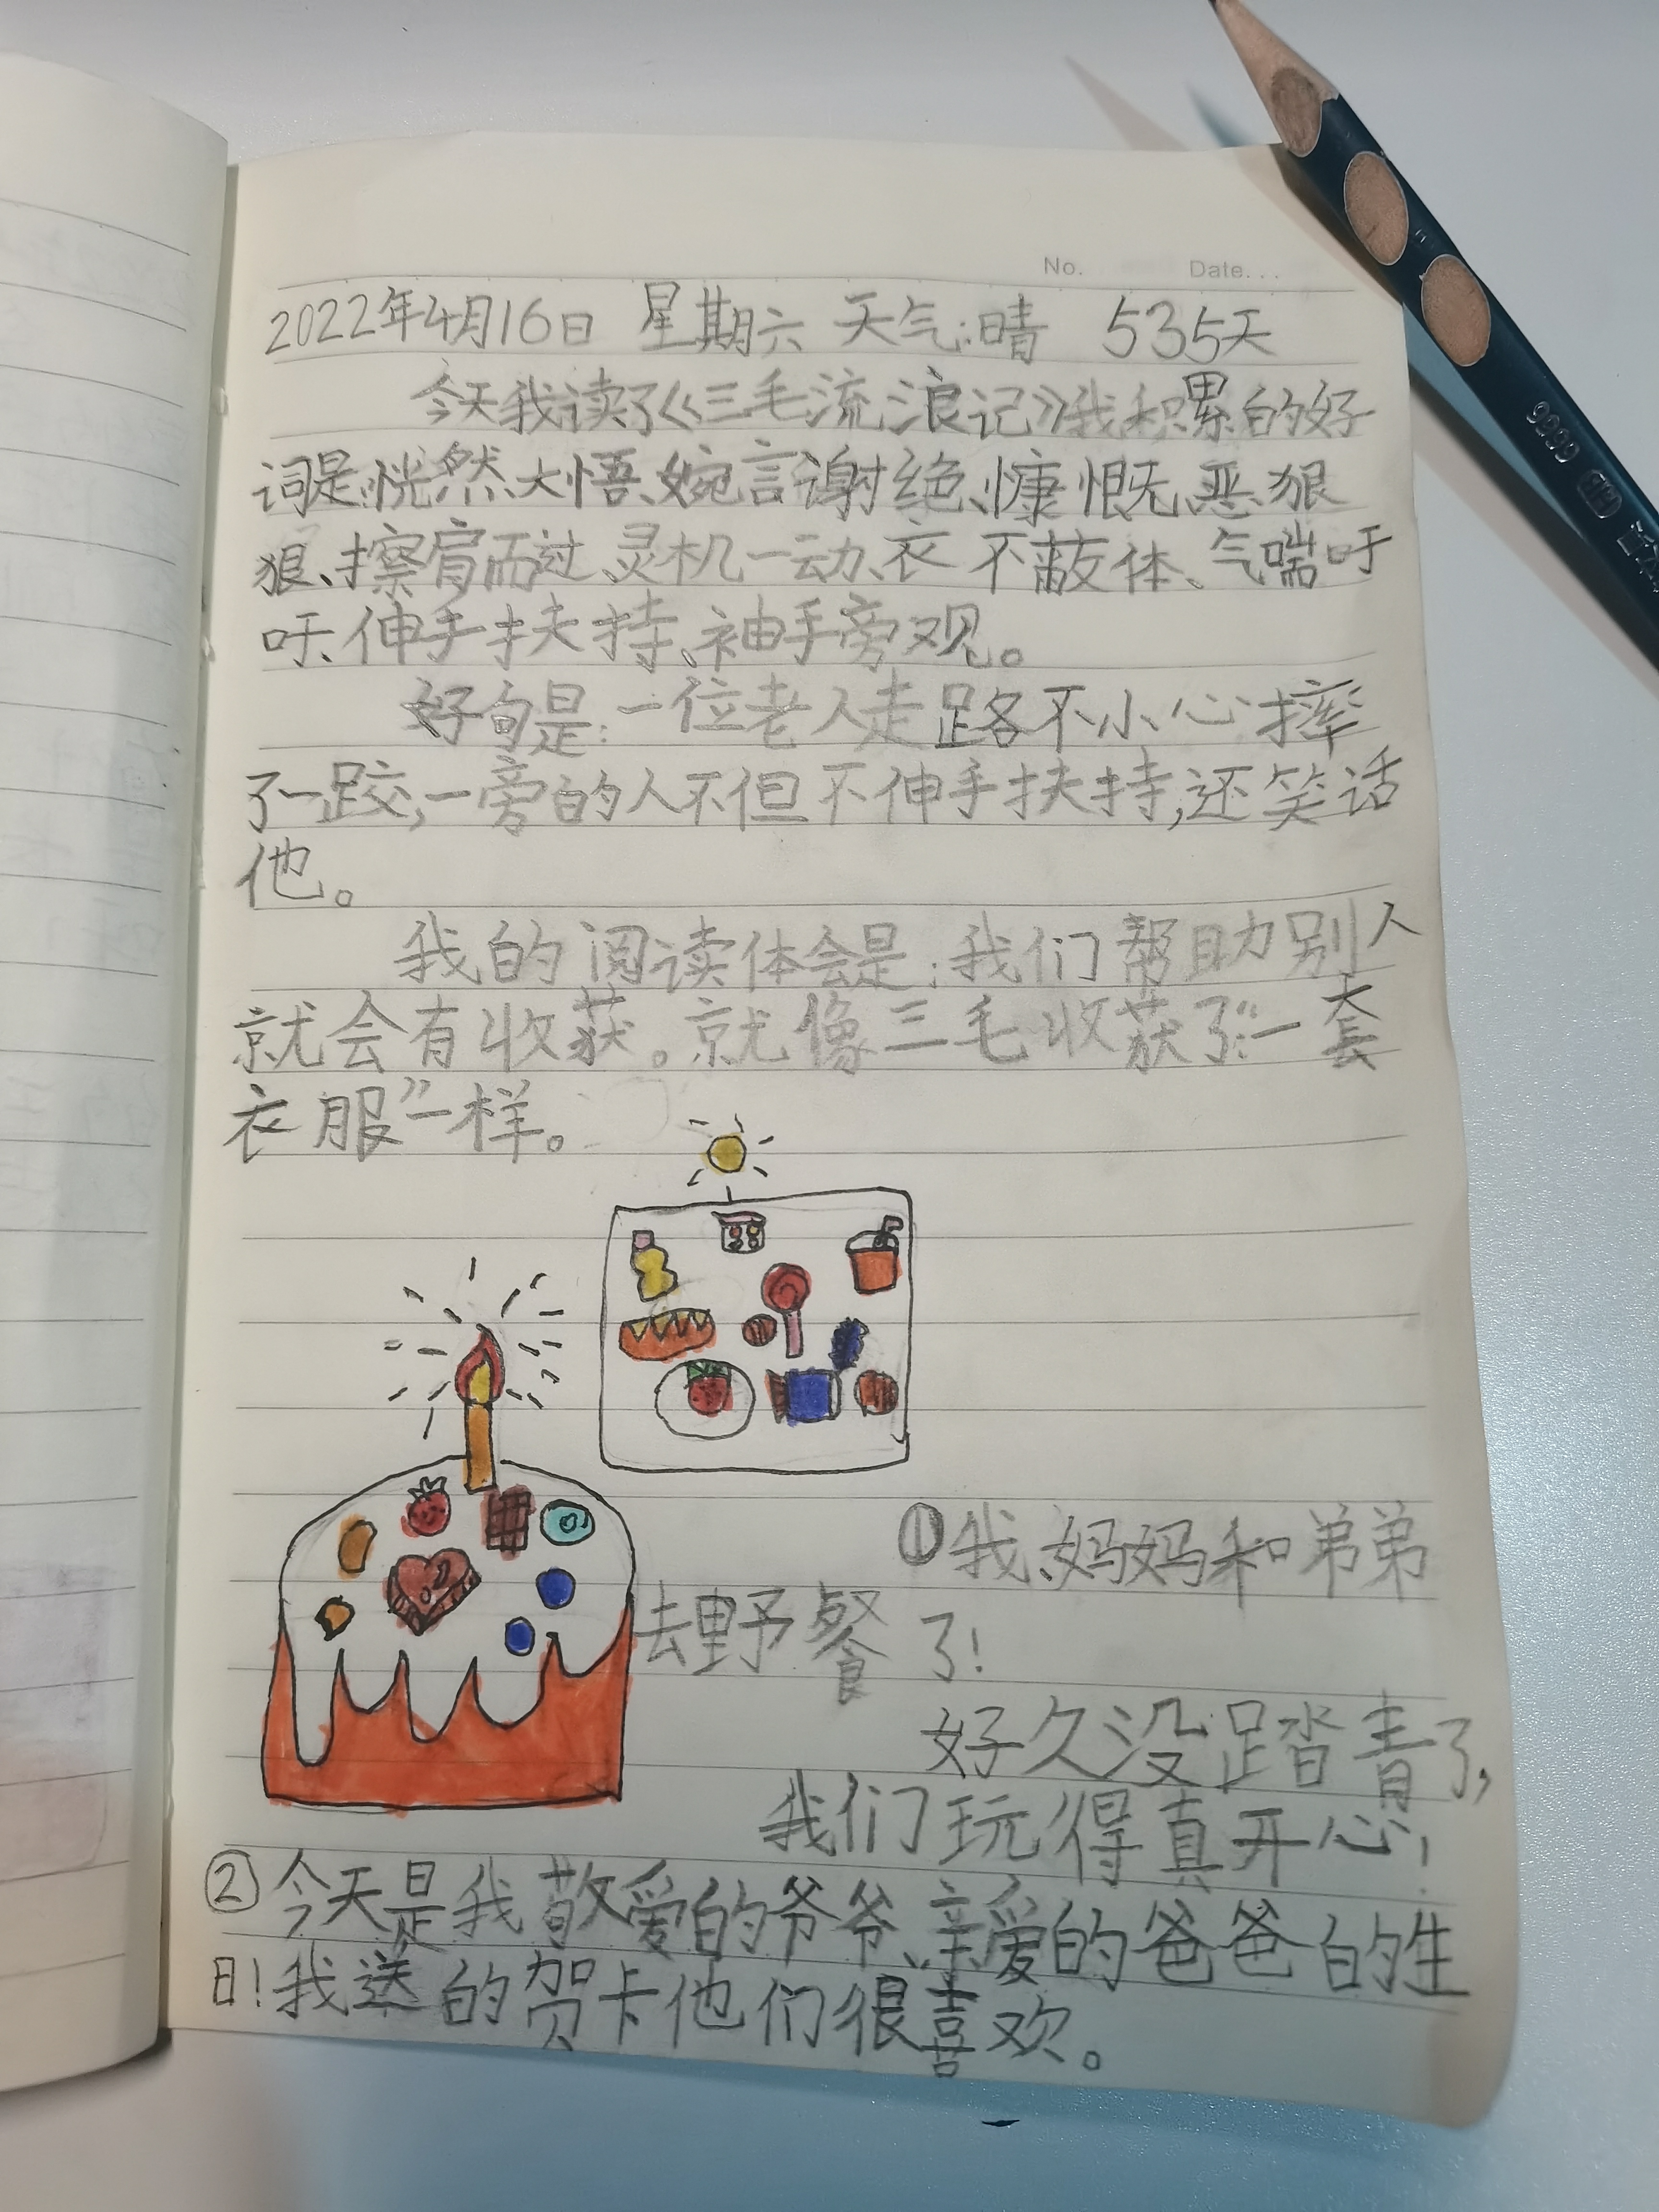 No.
Date...
2022年4月16日 星期六 天气:晴 535天
今天我读了《三毛流浪记》我积累的好
词是:恍然大悟、婉言谢绝、慷慨、恶狠
狠、擦肩而过、灵机一动、衣不蔽体、气喘吁
吁、伸手扶持、袖手旁观。
好句是:一位老人走路不小心摔
了一跤,一旁的人不但不伸手扶持,还笑话
他。
我的阅读体会是:我们帮助别人
就会有收获。就像三毛收获了“一套
衣服”一样。
①我、妈妈和弟弟
去野餐了!
好久没踏青了,
我们玩得真开心!
②今天是我敬爱的爷爷、亲爱的爸爸的生
日!我送的贺卡他们很喜欢。
9999